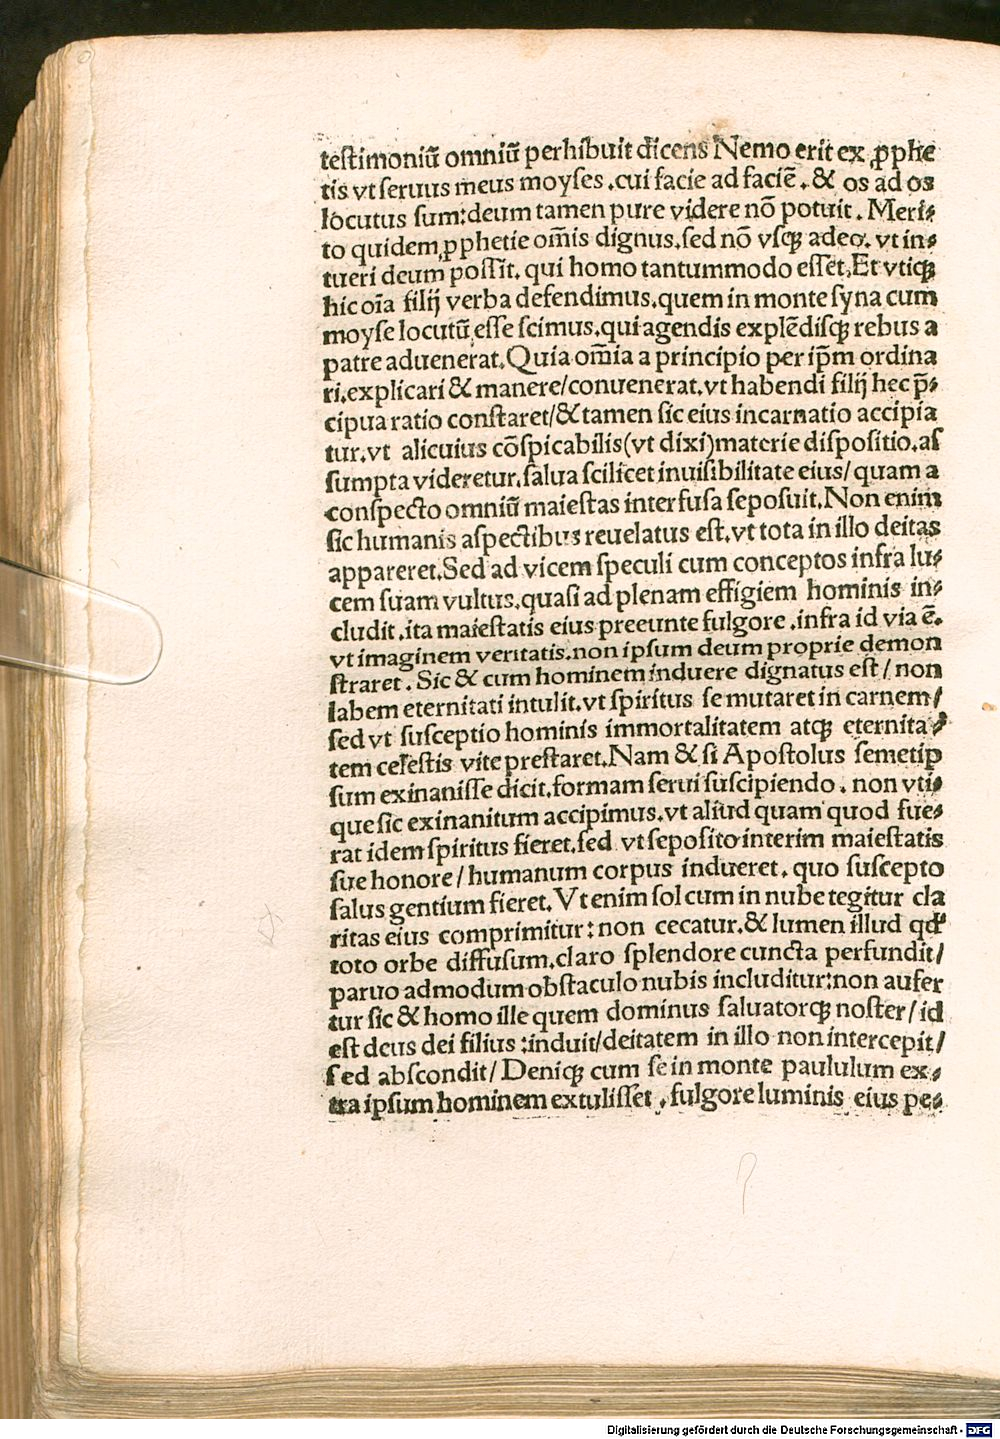 testimoniū omniū perhibuit dicens Nemo erit ex ꝓphe
tis vt seruus meus moyses .cui facie ad faciē .& os ad os
locutus sum:deum tamen pure videre nō potuit . Meri⸗
to quidem ꝓphetie om̄is dignus.sed nō vsqꝫ adeo. vt in⸗
tueri deum possit. qui homo tantummodo esset.Et vtiqꝫ
hic oīa filij verba defendimus.quem in monte syna cum
moyse locutū esse scimus.qui agendis explēdisqꝫ rebus a
patre aduenerat.Quia om̄ia a principio per ip̄m ordina
ri.explicari & manere/conuenerat.vt habendi filij hec p̄⸗
cipua ratio constaret/& tamen sic eius incarnatio accipia
tur.vt alicuius cōspicabilis(vt dixi)materie dispositio.as
sumpta videretur.salua scilicet inuisibilitate eius/ quam a
conspecto omniū maiestas interfusa seposuit.Non enim
sic humanis aspectibus reuelatus est.vt tota in illo deitas
appareret.Sed ad vicem speculi cum conceptos infra lu⸗
cem suam vultus.quasi ad plenam effigiem hominis in⸗
cludit.ita maiestatis eius preeunte fulgore .infra id via ē.
vt imaginem veritatis.non ipsum deum proprie demon
straret . Sic & cum hominem induere dignatus est/ non
labem eternitati intulit.vt spiritus se mutaret in carnem/
sed vt susceptio hominis immortalitatem atqꝫ eternita⸗
tem celestis vite prestaret.Nam & si Apostolus semetip
sum exinanisse dicit.formam serui suscipiendo . non vti⸗
que sic exinanitum accipimus.vt aliud quam quod fue⸗
rat idem spiritus fieret.sed vt seposito interim maiestatis
sue honore/ humanum corpus indueret . quo suscepto
salus gentium fieret. Vt enim sol cum in nube tegitur cla
ritas eius comprimitur: non cecatur.& lumen illud qd'
toto orbe diffusum.claro splendore cuncta perfundit/
paruo admodum obstaculo nubis includitur:non aufer
tur sic & homo ille quem dominus saluatorqꝫ noster/ id
est deus dei filius :induit/deitatem in illo non intercepit/
sed abscondit/ Deniqꝫ cum se in monte paululum ex⸗
tra ipsum hominem extulisset . fulgore luminis eius pe⸗
Digitalisierung gefördert durch die Deutsche Forschungsgemeinschaft - DFG